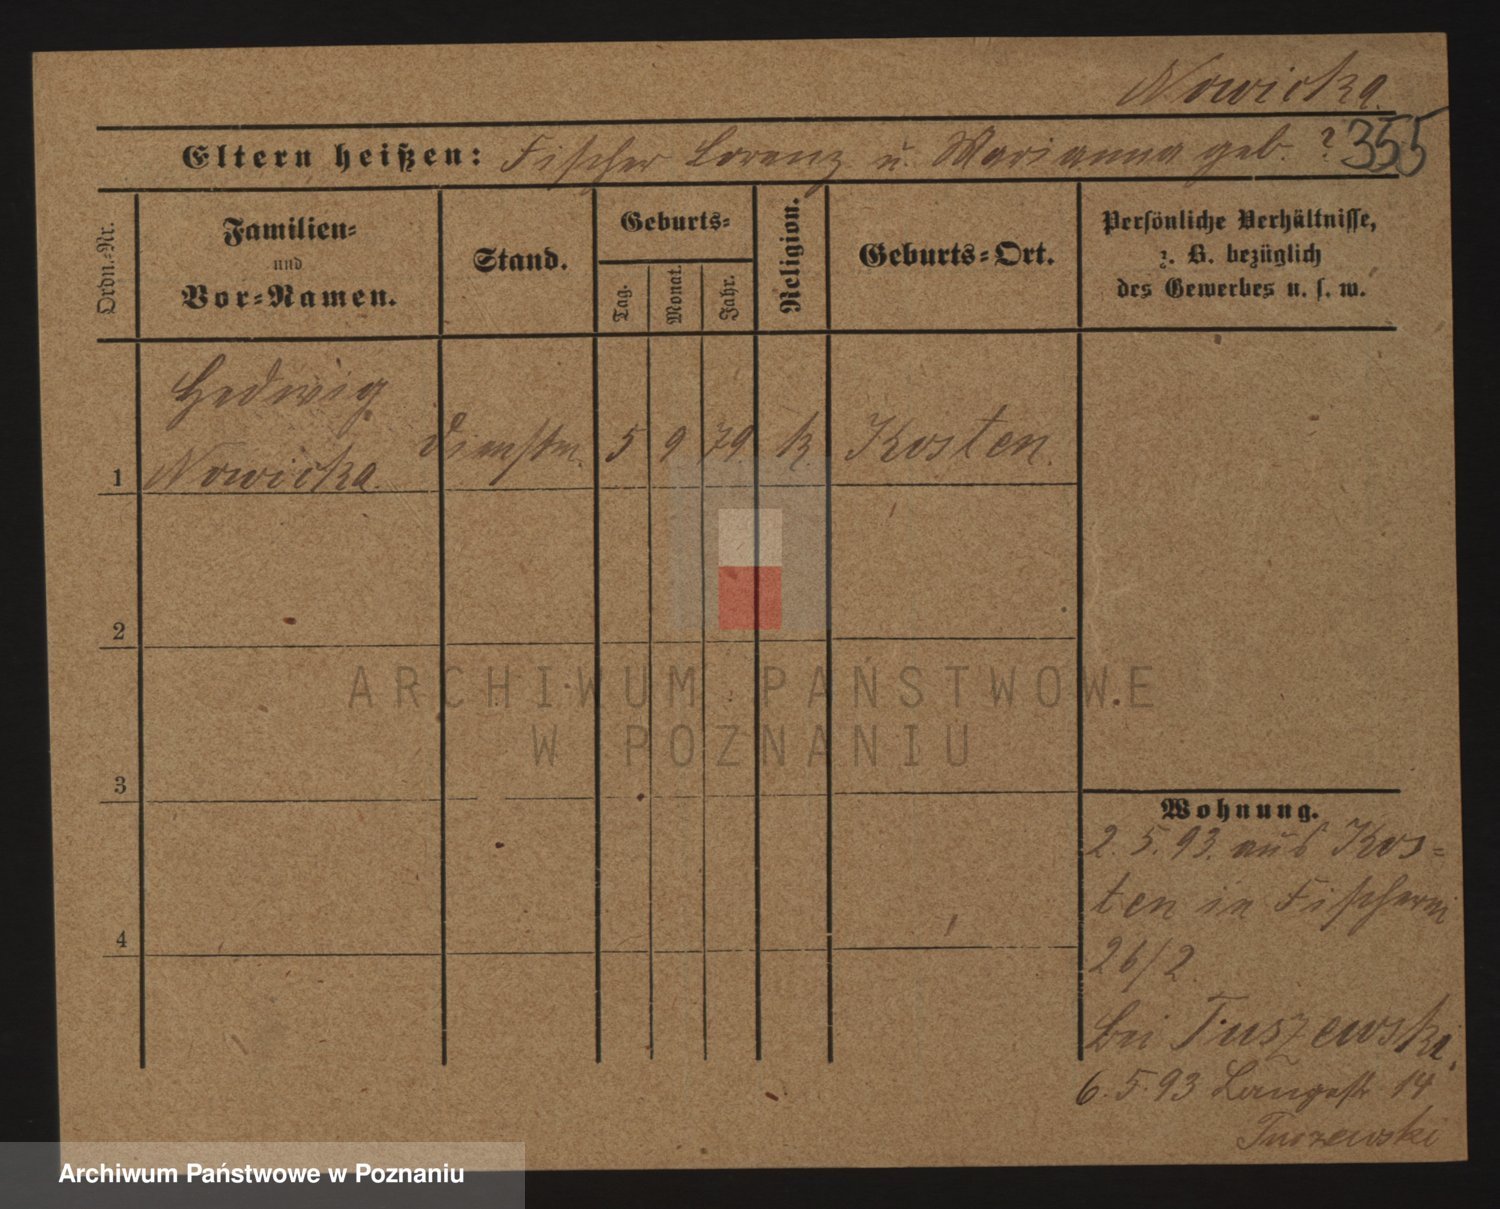 Nowicka.
Eltern heißen: Fischer Lorenz u. Marianna geb. ? 355
Ordn.-Nr.
Familien-
und
Vor-Namen.
Stand.
Geburts-
Tag.
Monat.
Jahr.
Religion.
Geburts-Ort.
Persönliche Verhältnisse,
z. B. bezüglich
des Gewerbes u. s. w.
Hedwig
1 Nowicka. Dienstm. 5 9 79. k. Kosten.
2
3
4
Wohnung.
2. 5. 93. aus Kos=
ten in Fischerei
26/2.
bei Tuszewski.
6. 5. 93 Langestr 14
Tuszewski
ARCHIWUM PAŃSTWOWE
W POZNANIU
Archiwum Państwowe w Poznaniu